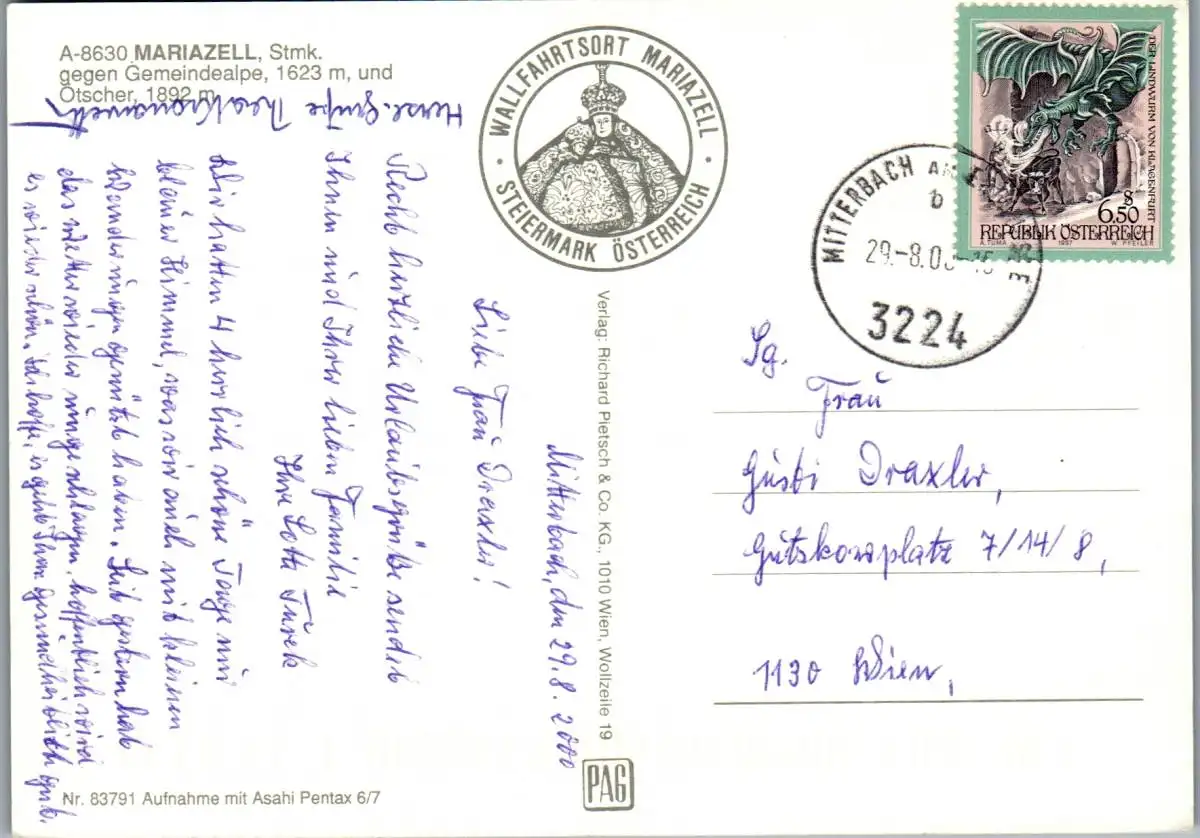 A-8630 MARIAZELL, Stmk.
gegen Gemeindealpe, 1623 m, und
Ötscher, 1892 m
WALLFAHRTSORT MARIAZELL
STEIERMARK ÖSTERREICH
DER LINDWURM VON KLAGENFURT
S
6.50
REPUBLIK ÖSTERREICH
A. TUMA 1997 W. PFEILER
MITTERBACH AM
b
29.-8.00-15
3224
Mitterbach, den 29.8.2000
Liebe Frau Draxler!
Recht herzliche Urlaubsgrüße sendet
Ihnen und Ihrer lieben Familie
Ihre Lotte Turek
Wir hatten 4 herrlich schöne Tage mit
blauer Himmel, was wir auch mit kleinen
Wanderungen genützt haben. Seit gestern hat
das Wetter wieder umgeschlagen, hoffentlich wird
es wieder schön. Ich hoffe, es geht Ihnen gesundheitlich gut.
Herzl. Grüße
Sg.
Frau
Gusti Draxler,
Gutzkowplatz 7/14/8,
1130 Wien,
Verlag: Richard Pietsch & Co. KG., 1010 Wien, Wollzeile 19
PAG
Nr. 83791 Aufnahme mit Asahi Pentax 6/7